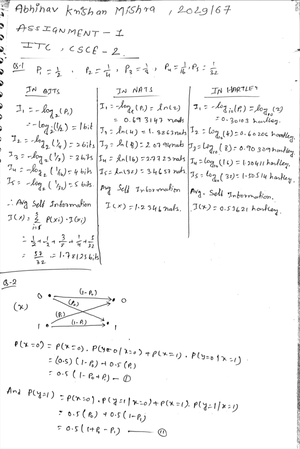 Abhinav Krishan Mishra, 2029167
ASSIGNMENT - 1
ITC, CSCE - 2
Q.1 P₁ = 1/2, P₂ = 1/4, P₃ = 1/8, P₄ = 1/16, P₅ = 1/32
IN BITS
I₁ = -log₂(P₁)
= -log₂(1/2) = 1 bit
I₂ = -log₂(1/4) = 2 bits
I₃ = -log₂(1/8) = 3 bits
I₄ = -log₂(1/16) = 4 bits
I₅ = -log₂(1/32) = 5 bits
∴ Avg Self Information
I(x) = Σ P(xi) · I(xi)
= 1/2 + 1/2 + 3/8 + 1/4 + 5/32
= 57/32 = 1.78125 bits
IN NATS
I₁ = -log(P₁) = ln(2)
= 0.693147 nats
I₂ = ln(4) = nats
I₃ = ln(8) = nats
I₄ = ln(16) = nats
I₅ = ln(32) = nats
Avg Self Information
I(x) = 1.2346 nats.
IN HARTLEY
I₁ = -log₁₀(P₁) = log₁₀(2)
= 0.30103 hartley.
I₂ = log₁₀(4) = 0.60206 hartley
I₃ = log₁₀(8) = 0.90309 hartley
I₄ = log₁₀(16) = 1.20411 hartley.
I₅ = log₁₀(32) = 1.50514 hartley.
Avg. Self Information.
I(x) = 0.53621 hartley.
Q-2
(x)
0 (1-P₀) 0
(P₀)
(P₁)
1 (1-P₁) 1
P(x=0) = P(x=0). P(y=0/x=0) + P(x=1). P(y=0/x=1)
= (0.5)(1-P₀) + 0.5(P₁)
= 0.5(1-P₀+P₁) - (I)
And P(y=1) = P(x=0). P(y=1/x=0) + P(x=1). P(y=1/x=1)
= 0.5(P₀) + 0.5(1-P₁)
= 0.5(1+P₀-P₁) — (II)